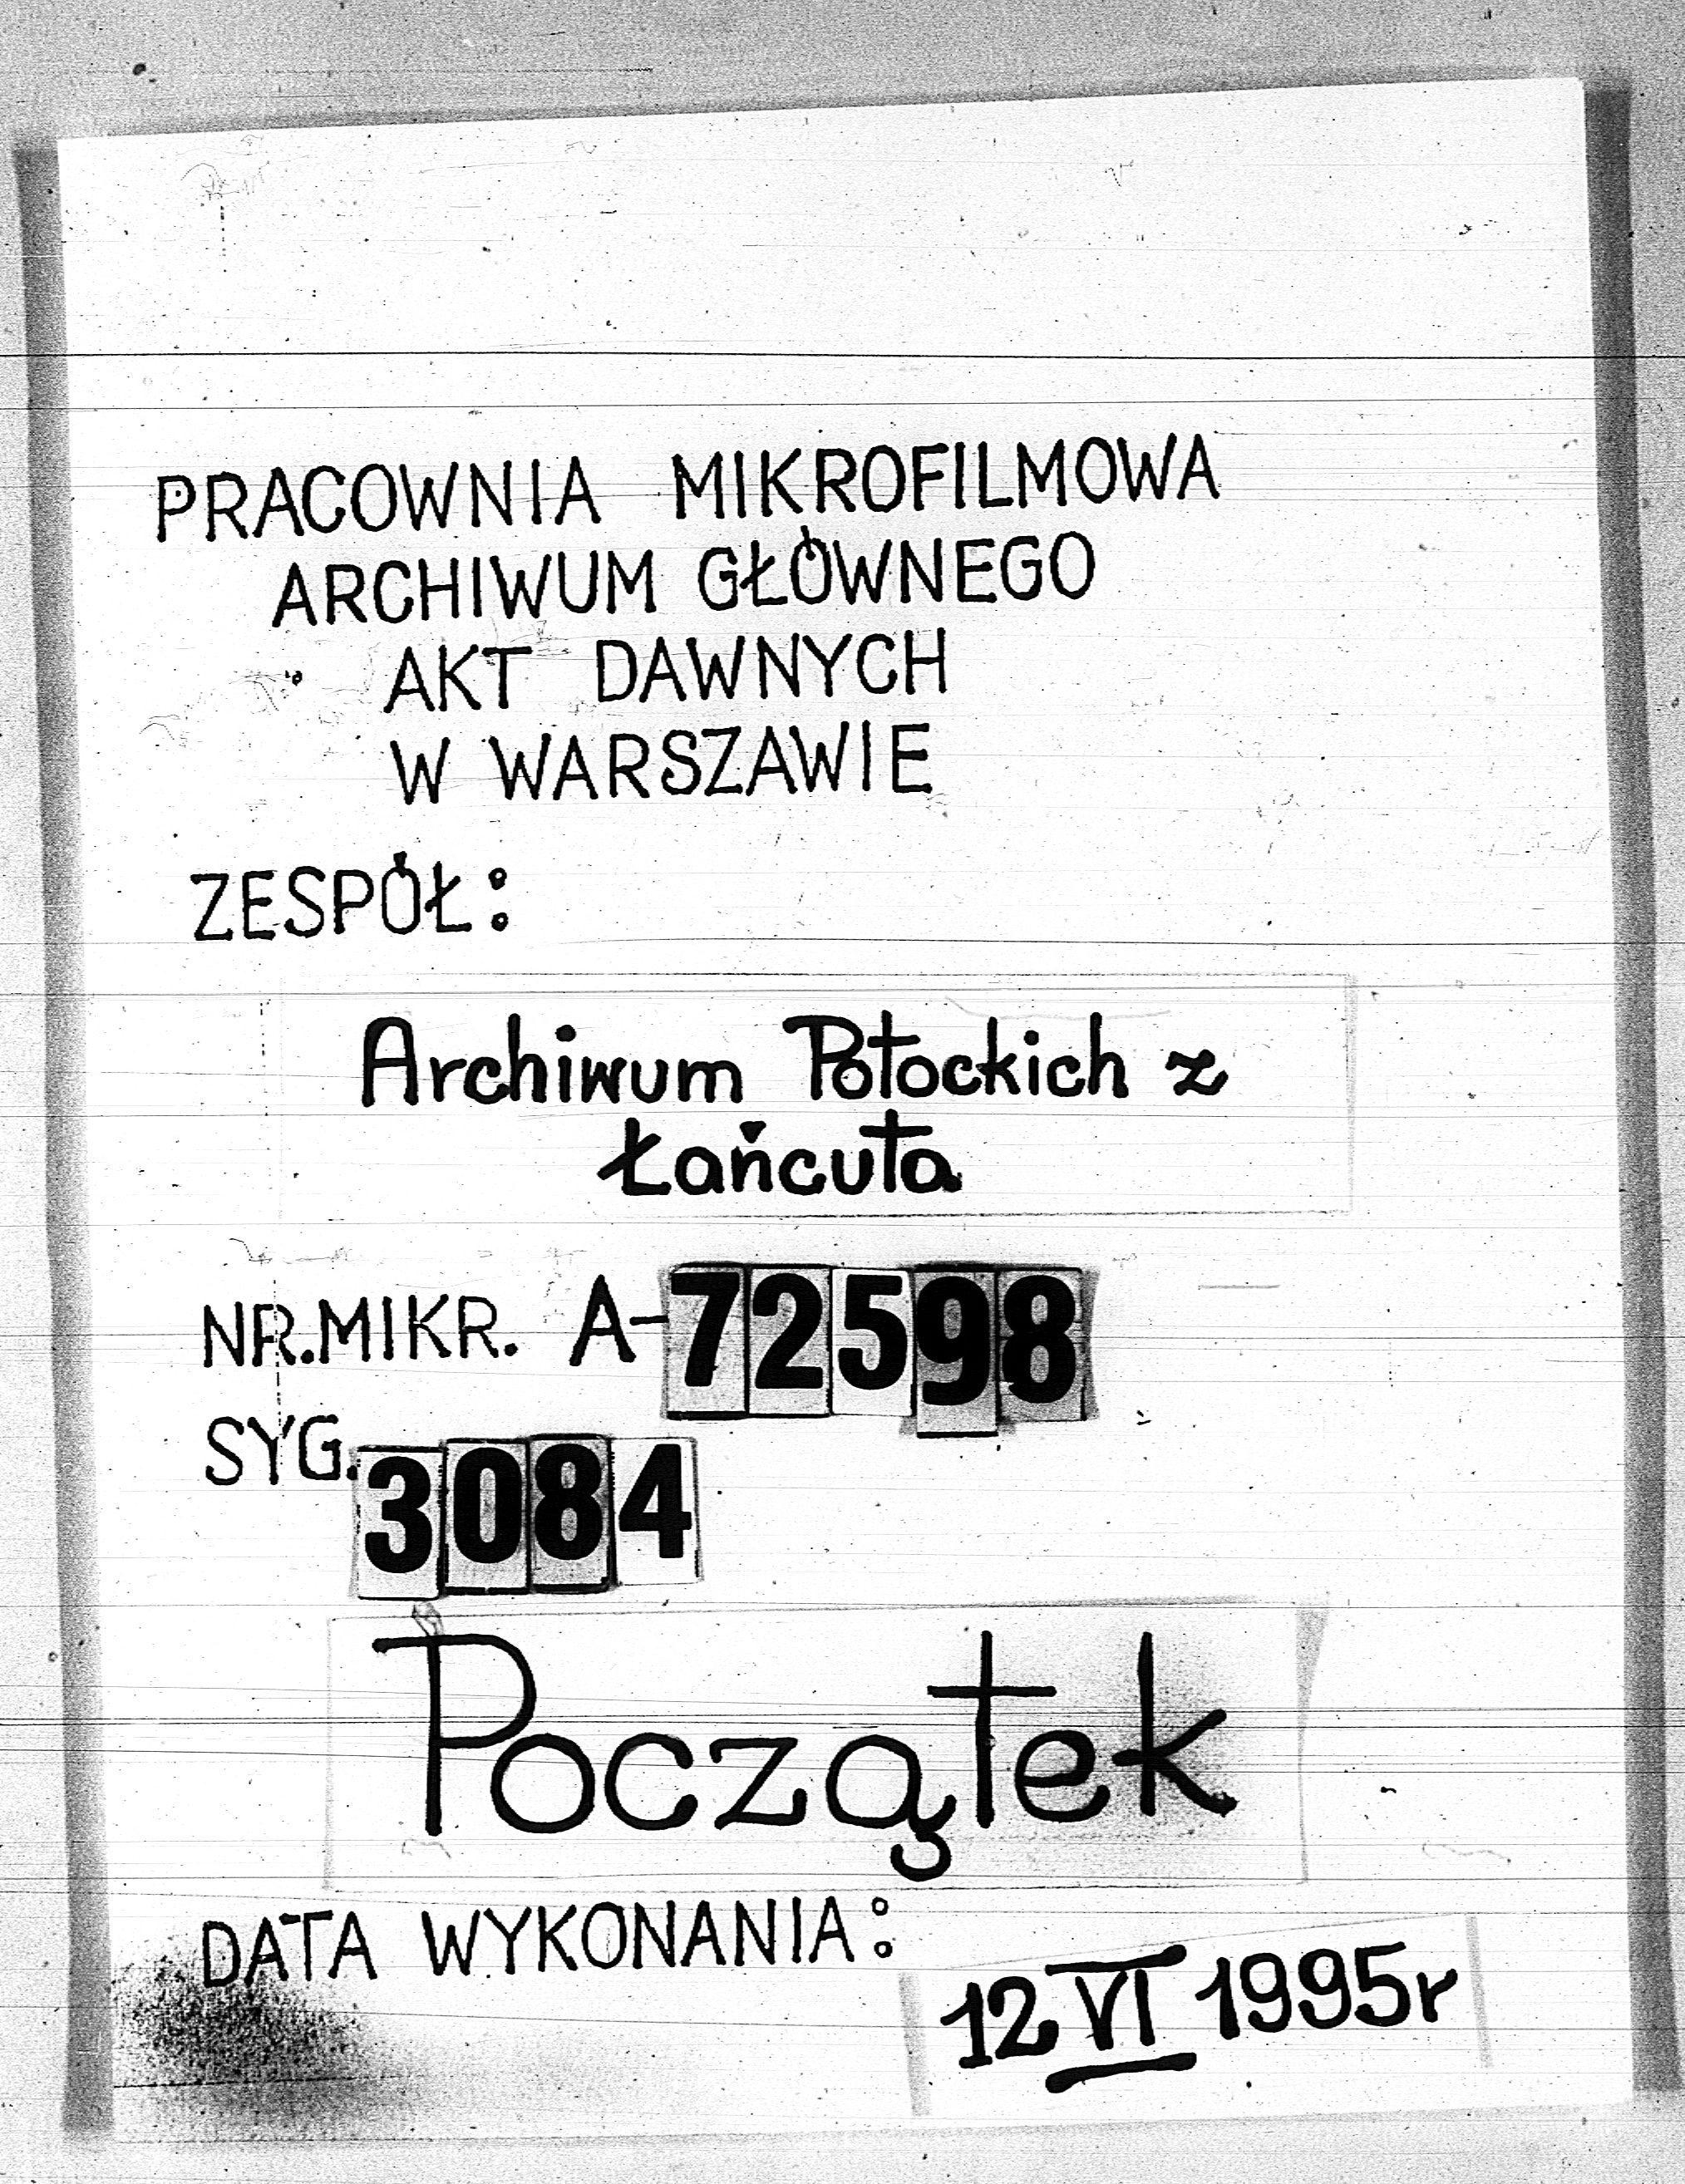 PRACOWNIA MIKROFILMOWA
ARCHIWUM GŁÓWNEGO
AKT DAWNYCH
W WARSZAWIE
ZESPÓŁ:
Archiwum Potockich z
Łańcuta
NR.MIKR. A-72598
SYG. 3084
Początek
DATA WYKONANIA:
12 VI 1995r